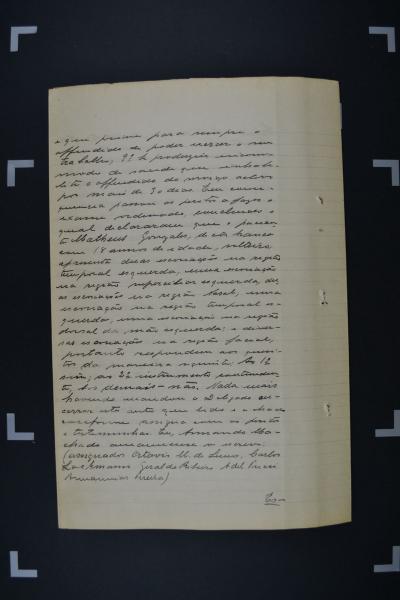 e que prive para sempre o
offendido de poder exercer o seu
trabalho; 9º Se produziu incom-
modo de saude que inhabi-
lite o offendido do serviço activo
por mais de 30 dias. Em conse-
quencia passou os peritos a fazer o
exame ordenado, concluindo o
qual declararam que o pacien-
te Matheus Gonzales, de côr branca
com 18 annos de idade, solteiro,
apresenta duas escoriações na região
temporal esquerda, uma escoriação
na região superciliar esquerda, du-
as escoriações na região nasal, uma
escoriação na região temporal es-
querda, uma escoriação na região
dorsal da mão esquerda; e diver-
sas escoriações na região facial,
portanto respondem aos quesi-
tos da maneira seguinte: Ao 1º
sim; ao 2º instrumento contunden-
te, Aos demais - não. Nada mais
havendo mandou o Delegado en-
cerrar este auto que lido e achado
conforme assigna com os peritos
e testemunhas. Eu, Armando Ma-
chado amanuense o escrevi.
(assignados Octavio M. de Carlos
Geraldo Ribeiro